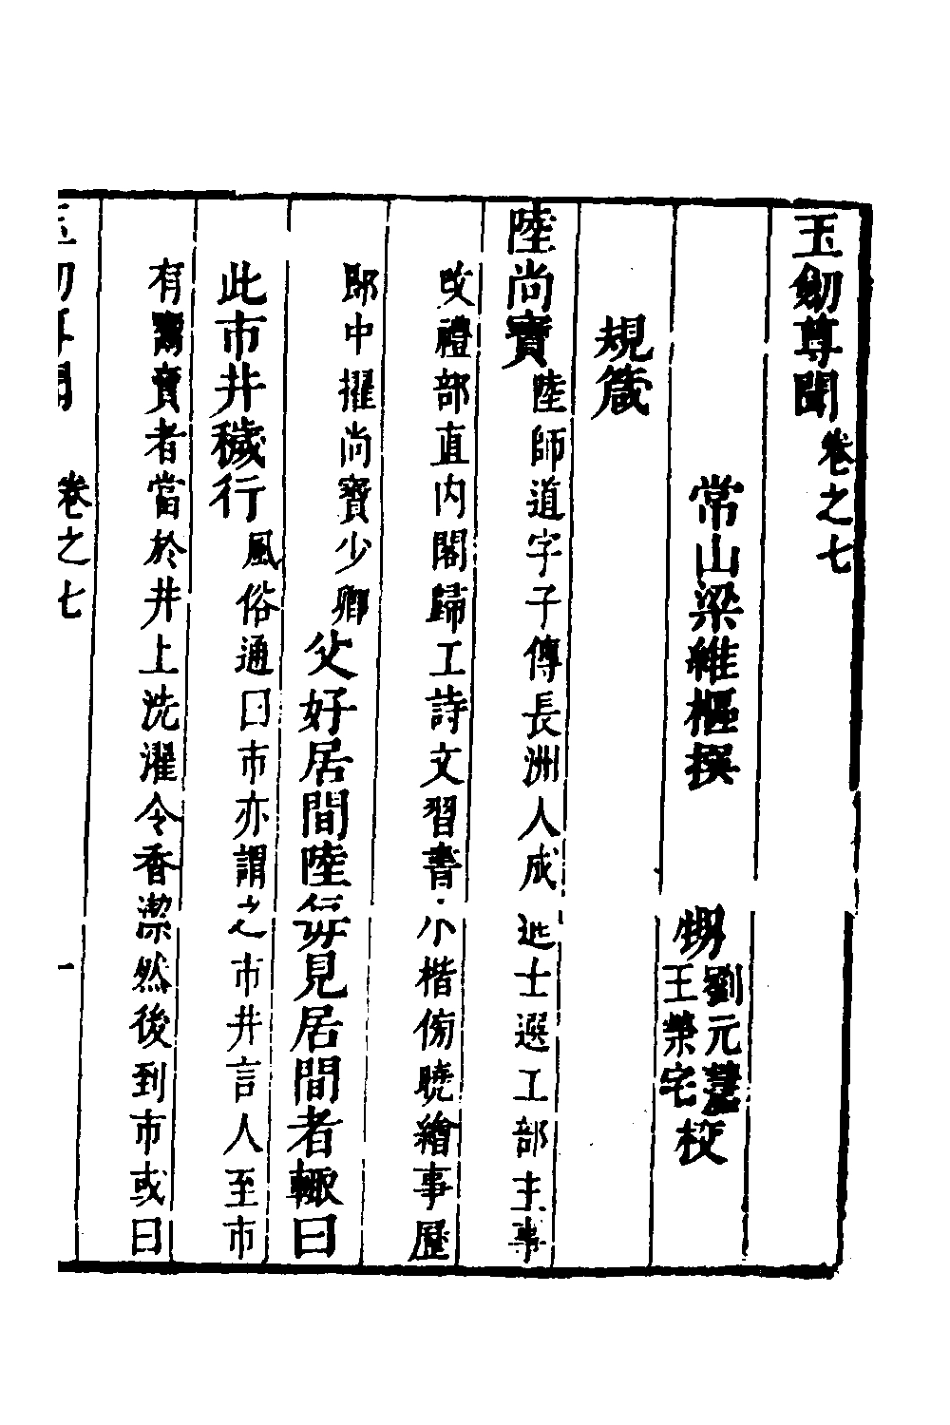 玉劒尊聞卷之七
常山梁維樞撰 甥劉元慧王榮宅校
規箴
陸尚寶陸師道字子傳長洲人成進士選工部主事
改禮部直内閣歸工詩文習書小楷傍曉繪事歷
郎中擢尚寶少卿父好居間陸每見居間者輙曰
此市井穢行風俗通曰市亦謂之市井言人至市
有鬻賣者當於井上洗濯令香潔然後到市或曰
卷之七 一